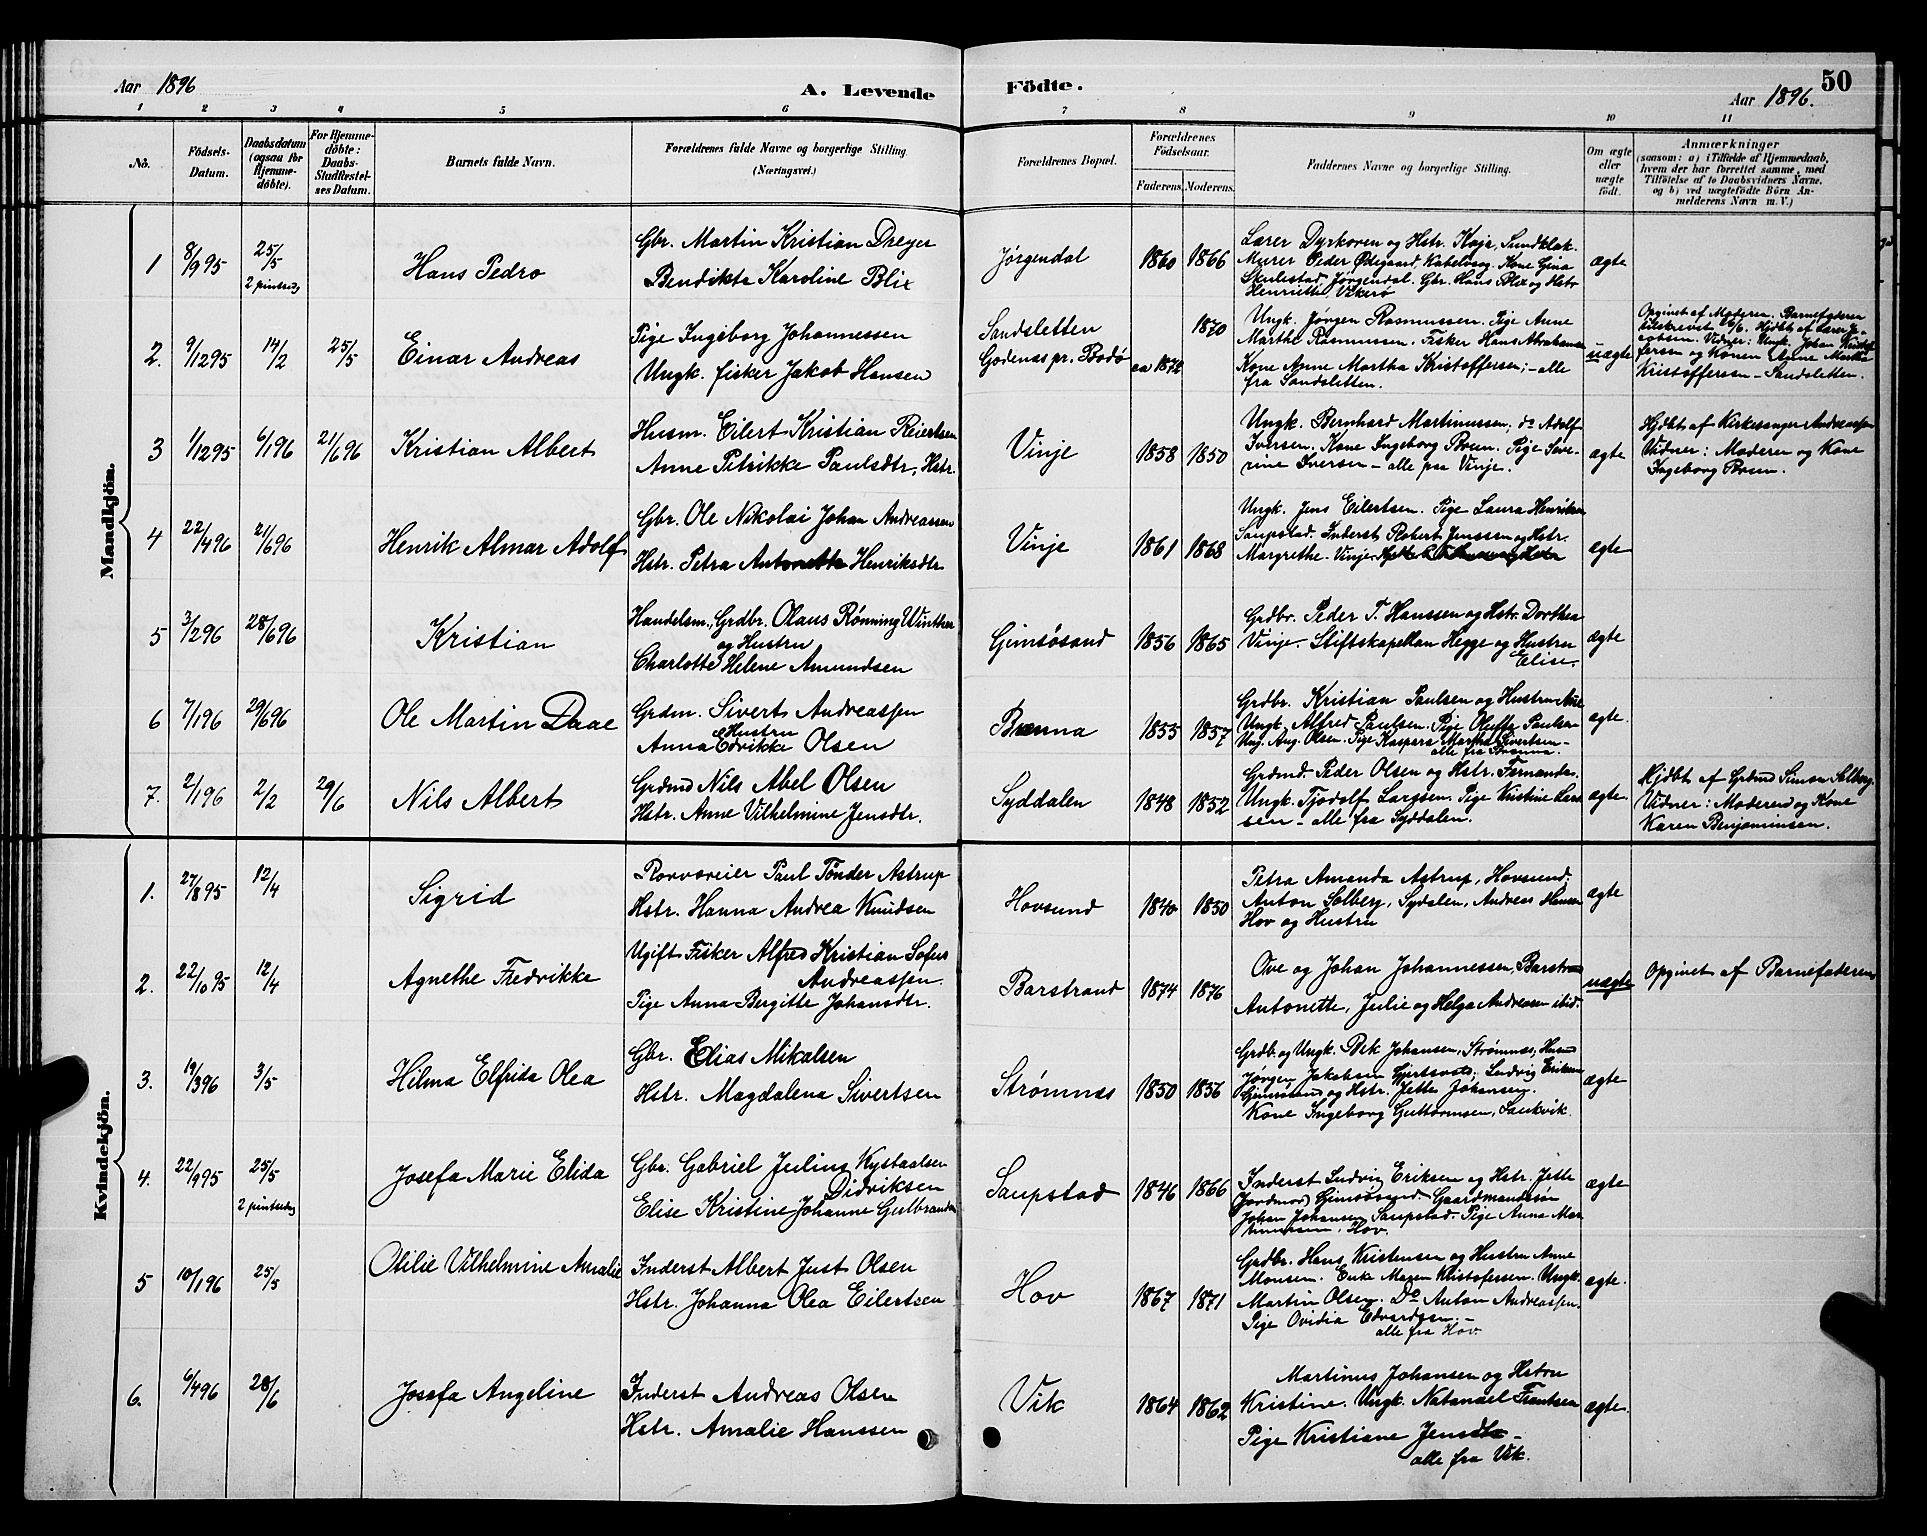 Aar 1896
A. Levende
Födte.
50
Aar 1896.
1 2 3 4 5 6 7 8 9 10 11
No.
Födsels-Datum.
Daabsdatum (ogsaa for Hjemme-döbte).
For Hjemme-döbte: Daabs-Stadfæstel-ses Datum.
Barnets fulde Navn.
Forældrenes fulde Navne og borgerlige Stilling.
(Næringsvei.)
Forældrenes Bopæl.
Forældrenes Födselsaar.
Faderens. Moderens.
Faddernes Navne og borgerlige Stilling.
Om ægte eller uægte födt.
Anmærkninger
(saasom: a) i Tilfælde af Hjemmedaab,
hvem der har forrettet samme, med
Tilföielse af to Daabsvidners Navne,
og b) ved uægtefödte Börn An-
melderens Navn m. V.)
Mandkjön.
1 8/9 95 25/5 2 pintsedag
Hans Pedro
Gbr. Martin Kristian Dreyer
Bendikte Karoline Blix
Jørgendal 1860 1866
Lærer Dyrkoren og Hstr. Kaja, Sundklak.
Murer Peder Ødegaard, Kabelvaag. Kone Gina
Skulestad, Jørgendal. Gbr. Hans Blix og Hstr
Henriette, Vikerø
ægte
2. 9/12 95 14/2 25/5
Einar Andreas
Pige Ingeborg Johannessen
Ungk. fisker Jakob Hansen
Sandsletten
Godenæs pr. Bodø ca 1872 1870
Ungk. Jørgen Rasmussen. Pige Anne
Marthe Rasmussen. Fisker Hans Abrahamsen
Kone Anne Martha Kristoffersen; - alle
fra Sandsletten.
uægte
Opgivet af Moderen. Barnefaderen
tilskrevet 26/6. Hjdbt af Lærer J-
acobsen. Vidner: Ungk. Johan Kristof-
fersen og Konen Anne Martha
Kristoffersen - Sandsletten.
3 1/12 95 6/1 96 21/6 96
Kristian Albert
Husm. Eilert Kristian Reiertsen
Anne Petrikke Paulsdtr, Hstr.
Vinje 1858 1850
Ungk. Bernhard Martinussen, do Adolf
Iversen. Kone Ingeborg Boesen. Pige Seve-
rine Iversen - alle paa Vinje.
ægte
Hjdbt af Kirkesanger Andreassen
Vidner: Moderen og Kone
Ingeborg Boesen.
4 22/4 96 21/6 96
Henrik Almar Adolf
Gbr. Ole Nikolai Johan Andreassen
Hstr. Petra Antonette Henriksdtr
Vinje 1861 1868
Ungk. Jens Eilertsen. Pige Laura Henriksen
Saupstad. Inderst Robert Jenssen og Hstr.
Margrethe. Vinje.
ægte
5 3/2 96 28/6 96
Kristian
Handelsm., Grdbr. Olaus Rønning Winther
og Hustru
Charlotte Helene Amundsen
Gimsøsand 1856 1865
Grdbr. Peder T. Hanssen og Hstr. Dorthea
Vinje. Stiftskapellan Hegge og Hustru
Elise.
ægte
6 7/1 96 29/6 96
Ole Martin Daae
Grdm. Sivert Andreassen
Hustru
Anna Edvikke Olsen
Brenna 1855 1857
Grdbr. Kristian Paulsen og Hustru Ane
Ungk. Alfred Paulsen. Pige Oluffa Paulsen
Ung. Aug. Olsen. Pige Kaspara Martha Sivertsen -
alle fra Brenna.
ægte.
7. 2/1 96 2/2 29/6
Nils Albert
Grdmd Nils Abel Olsen
Hstr. Anne Vilhelmine Jensdtr.
Syddalen 1848 1852
Grdmd. Peder Olsen og Hstr. Fernanda.
Ungk. Tjodolf Larssen. Pige Kristine Lars
sen - alle fra Syddalen.
ægte.
Hjdbt af Grdmd Simon Solberg.
Vidner: Moderen og Kone
Karen Benjaminsen.
Kvindekjön.
1. 27/8 95 12/4
Sigrid
Rorværeier Paul Tönder Astrup
Hstr. Hanna Andrea Knudsen
Hovsund 1840 1850
Petra Amanda Astrup, Hovsund.
Anton Solberg, Sydalen, Andreas Hansen
Hov og Hustru
ægte
2. 22/10 95 12/4
Agnethe Fredrikke
Ugift Fisker Alfred Kristian Sofus
Andreassen.
Pige Anna Bergitte Johansdtr.
Barstrand 1874 1876
Ove og Johan Johannessen, Barstrand
Antonette, Julie og Helga Andreasen ibid.
uægte
Opgivet af Barnefaderen
3. 19/3 96 3/5
Hilma Elfrida Olea
Gbr. Elias Mikalsen
Hstr. Magdalena Sivertsen
Strømnæs 1850 1856
Grdb. og Ungk. Bek Johansen, Strømnæs; Husmd
Jørgen Jakobsen Gjertsvold; Ludvig Eriksen
Gimsøsand og Hstr. Jette Johansen.
Kone Ingeborg Guttormsen, Saukvik.
ægte
4. 22/9 95 25/5 2 pintsedag
Josefa Marie Elida
Gbr. Gabriel Julius Kystaalsen
Didriksen
Elise Kristine Johanne Gulbrandsen
Saupstad 1846 1866
Inderst Ludvig Eriksen og Hstr. Jette
Jordmor, Gimsøsand. Gaardmandssøn
Johan Johansen Saupstad. Pige Anna Mar
Hov.
ægte
5 10/1 96 25/5
Otilie Vilhelmine Amalie
Inderst Albert Just Olsen
Hstr. Johanna Olea Eilertsen
Hov 1867 1871
Grdbr. Hans Kristensen og Hustru Anne
Monsen. Enke Maren Kristofersen. Ungk.
Martin Olsen. Do Anton Andreassen.
Pige Ovidia Edvardsen. -
alle fra Hov.
ægte.
6. 6/4 96 28/6
Josefa Angeline
Inderst Andreas Olsen
Hstr. Amalie Hanssen
Vik 1864 1862
Martinus Johansen og Hstru
Kristine. Ungk. Natanael Frantsen
Pige Kristiane Jensdtr -
alle fra Vik.
ægte.